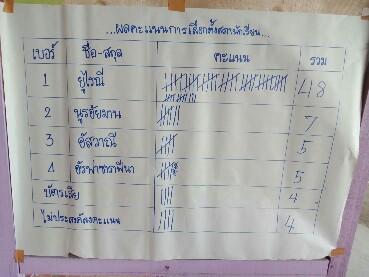 ...ผลคะแนนการเลือกตั้งสภานักเรียน...
เบอร์ ชื่อ-สกุล คะแนน รวม
1 ยุไรณี 48
2 นูรอัยมาน 7
3 อัสวาณี 5
4 5
บัตรเสีย 4
ไม่ประสงค์ลงคะแนน 4